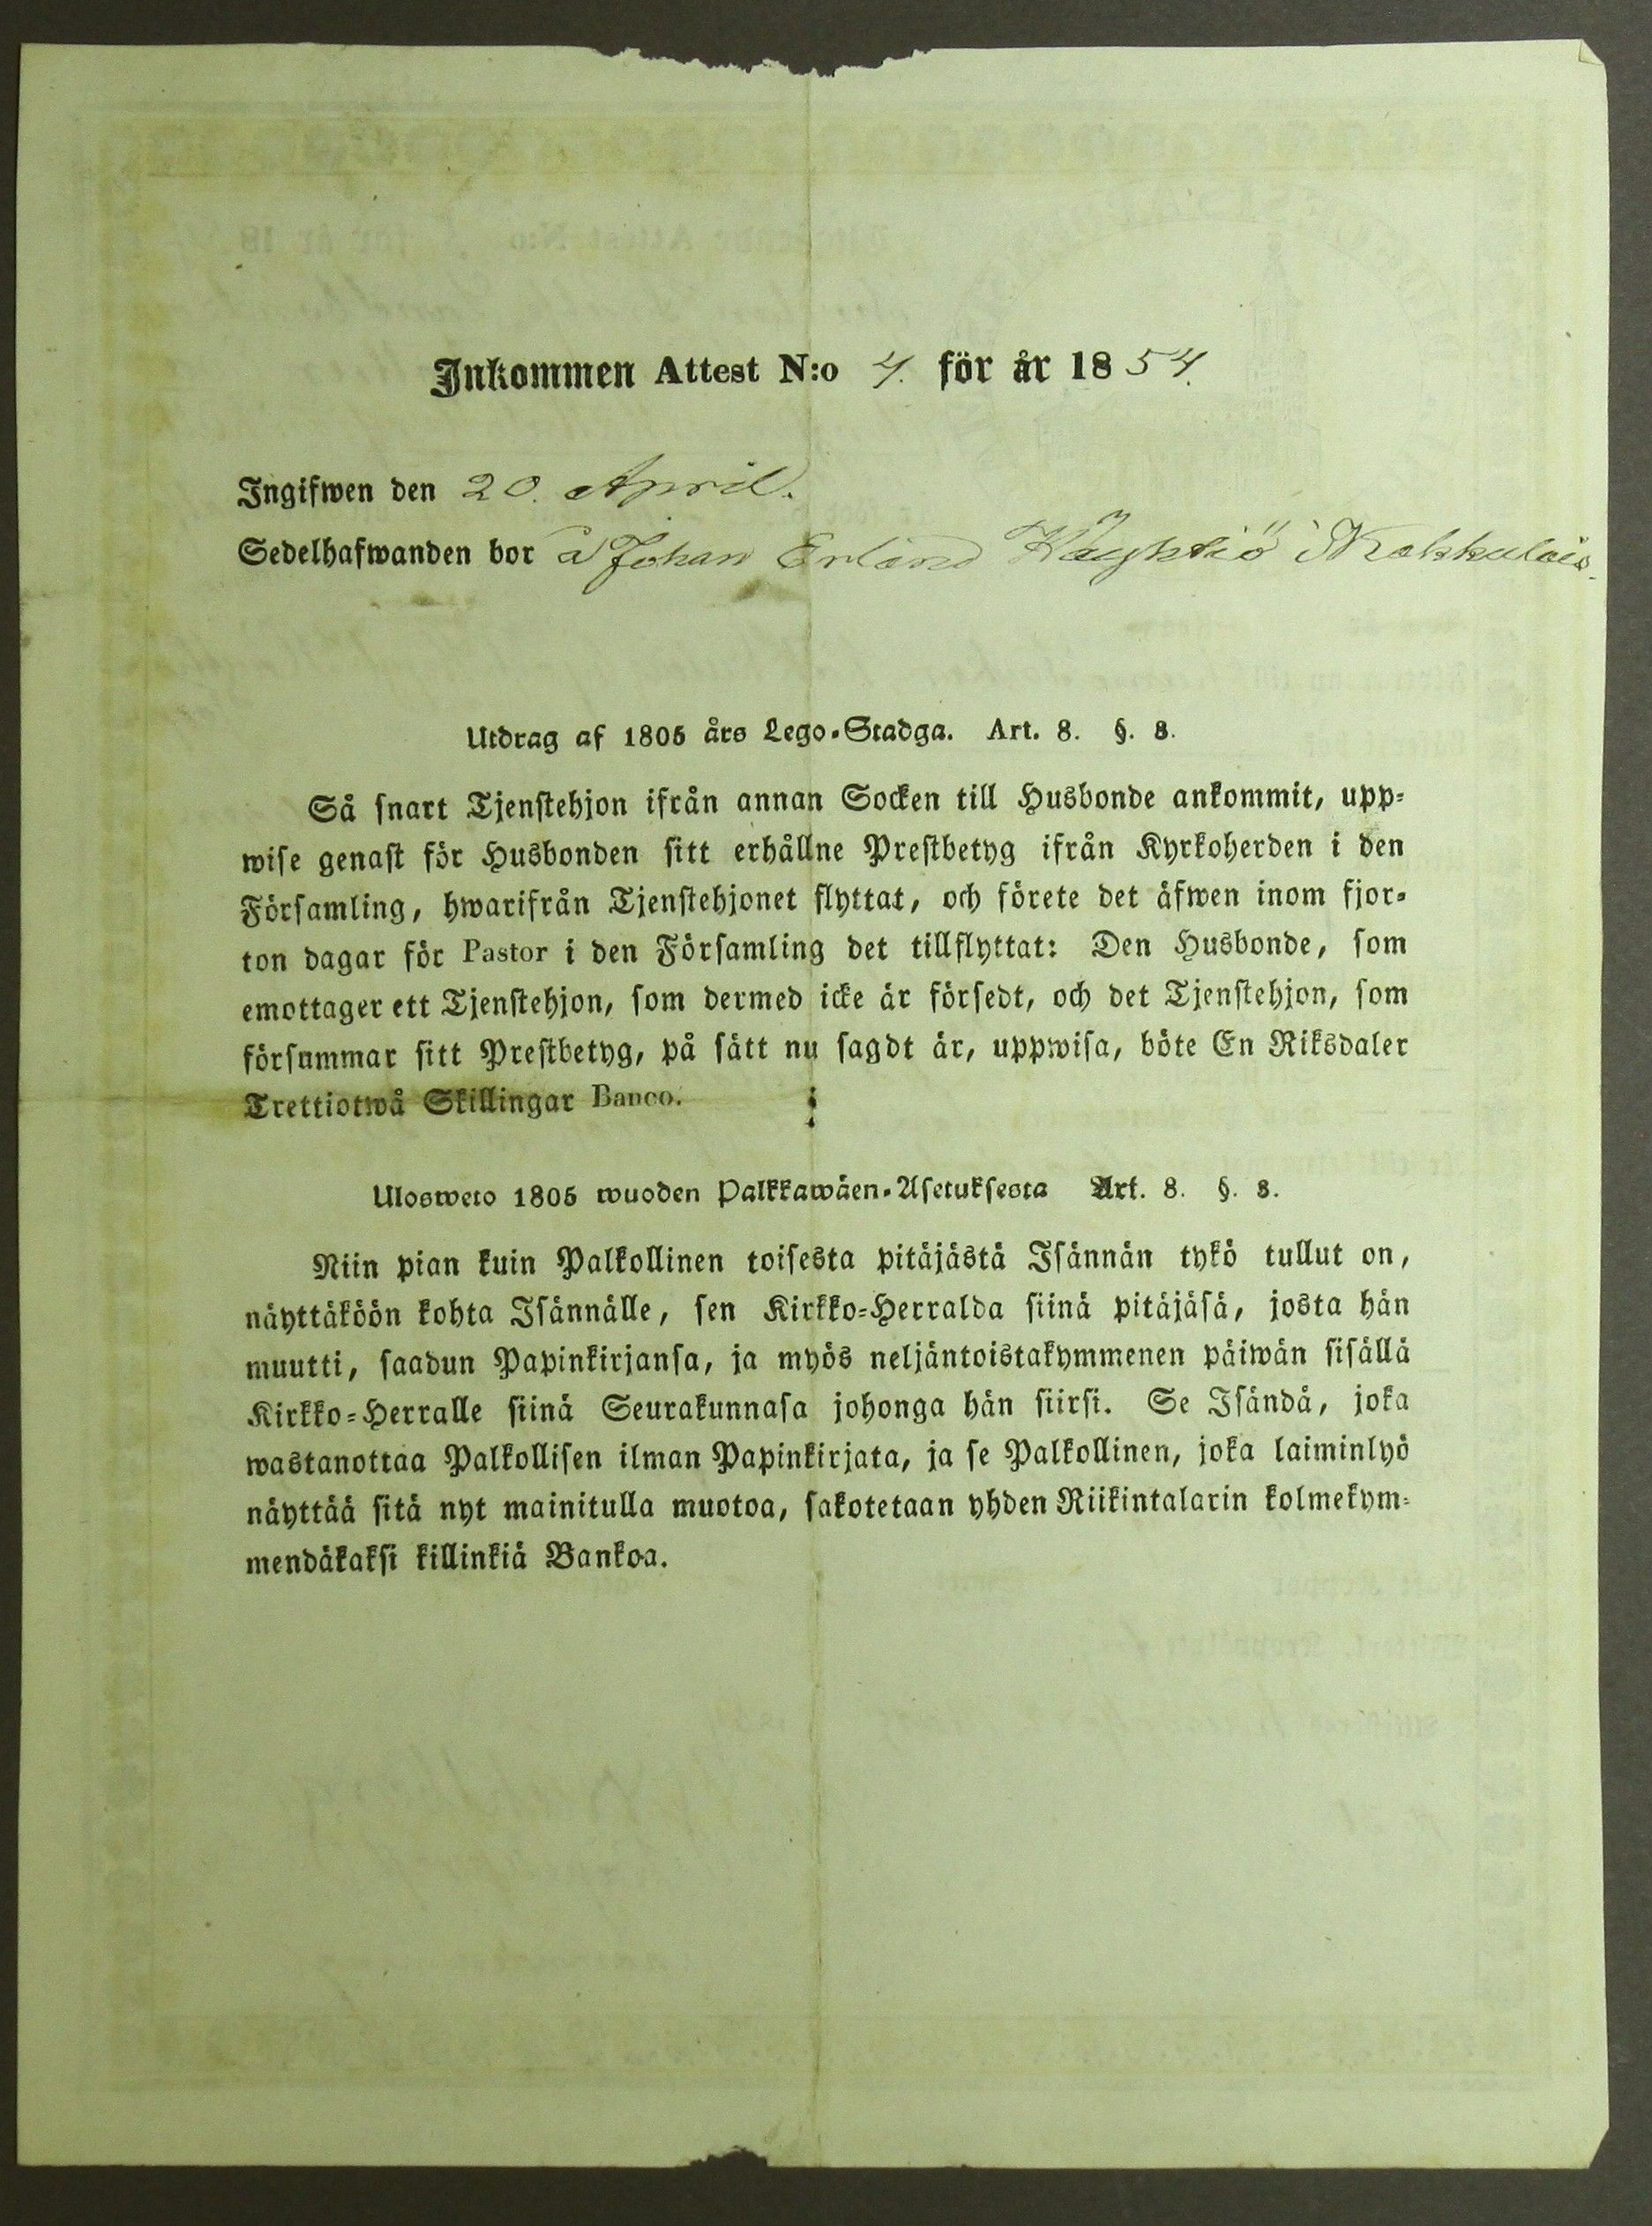 Inkommen Attest N:o 4. för år 1854.
Ingifwen den 20. April.
Sedelhafwanden bor å Johan Erland Käyhtiö i Kakkulais.
Utdrag af 1805 års Lego-Stadga. Art. 8. §. 8.
Så snart Tjenstehjon ifrån annan Socken till Husbonde ankommit, upp-
wise genast för Husbonden sitt erhållne Prestbetyg ifrån Kyrkoherden i den
Församling, hwarifrån Tjenstehjonet flyttat, och förete det äfwen inom fjor-
ton dagar för Pastor i den Församling det tillflyttat: Den Husbonde, som
emottager ett Tjenstehjon, som dermed icke är försedt, och det Tjenstehjon, som
försummar sitt Prestbetyg, på sätt nu sagdt är, uppwisa, böte En Riksdaler
Trettiotwå Skillingar Banco.
Ulosweto 1805 wuoden Palkkawäen-Asetuksesta Art. 8. §. 8.
Niin pian kuin Palkollinen toisesta pitäjästä Isännän tykö tullut on,
näyttäköön kohta Isännälle, sen Kirkko-Herralda siinä pitäjäsä, josta hän
muutti, saadun Papinkirjansa, ja myös neljäntoistakymmenen päiwän sisällä
Kirkko-Herralle siinä Seurakunnasa johonga hän siirsi. Se Isändä, joka
wastanottaa Palkollisen ilman Papinkirjata, ja se Palkollinen, joka laiminlyö
näyttää sitä nyt mainitulla muotoa, sakotetaan yhden Riikintalarin kolmekym-
mendäkaksi killinkiä Bankoa.